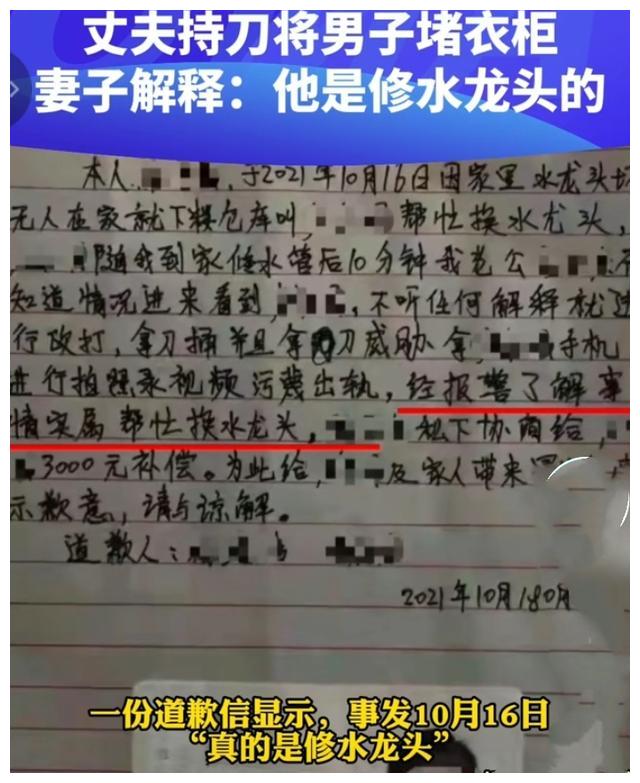 丈夫持刀将男子堵衣柜
妻子解释：他是修水龙头的
本人，于2021年10月16日因家里水龙头坏
无人在家就下楼仓库叫，帮忙换水龙头，
随我到家修水管后10分钟我老公不
知道情况进来看到，不听任何解释就进
行攻打，拿刀捅并且拿刀威胁拿手机
进行拍照录视频污蔑出轨，经报警了解事
情实属帮忙换水龙头，私下协商给，
3000元补偿。为此给，及家人带来
示歉意，请与谅解。
道歉人：
2021年10月18日
一份道歉信显示，事发10月16日
“真的是修水龙头”